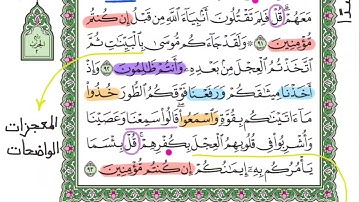 مَعَهُمْ ۗ قُلْ فَلِمَ تَقْتُلُونَ أَنۢبِيَآءَ ٱللَّهِ مِن قَبْلُ إِن كُنتُم
مُّؤْمِنِينَ ٩١ ۞ وَلَقَدْ جَآءَكُم مُّوسَىٰ بِٱلْبَيِّنَٰتِ ثُمَّ
ٱتَّخَذْتُمُ ٱلْعِجْلَ مِنۢ بَعْدِهِۦ وَأَنتُمْ ظَٰلِمُونَ ٩٢ وَإِذْ
أَخَذْنَا مِيثَٰقَكُمْ وَرَفَعْنَا فَوْقَكُمُ ٱلطُّورَ خُذُوا۟
مَآ ءَاتَيْنَٰكُم بِقُوَّةٍ وَٱسْمَعُوا۟ ۖ قَالُوا۟ سَمِعْنَا وَعَصَيْنَا
وَأُشْرِبُوا۟ فِى قُلُوبِهِمُ ٱلْعِجْلَ بِكُفْرِهِمْ ۚ قُلْ بِئْسَمَا
يَأْمُرُكُم بِهِۦٓ إِيمَٰنُكُمْ إِن كُنتُم مُّؤْمِنِينَ ٩٣
المعجزات
الواضحات